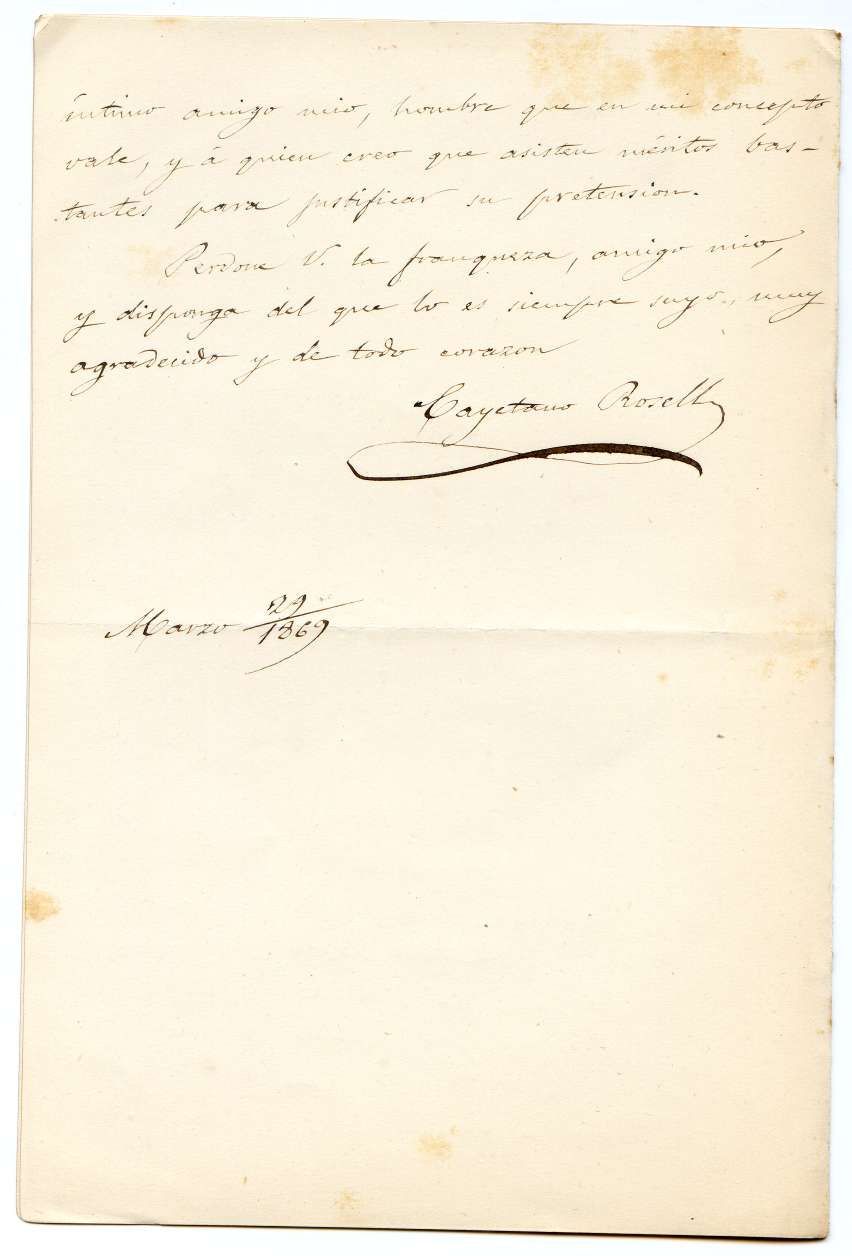 íntimo amigo mio, hombre que en mi concepto
vale, y á quien creo que asisten méritos bas-
tantes para justificar su pretension.
Perdone V. la franqueza, amigo mio,
y disponga del que lo es siempre suyo, muy
agradecido y de todo corazon
Cayetano Rosell
Marzo 29/1869